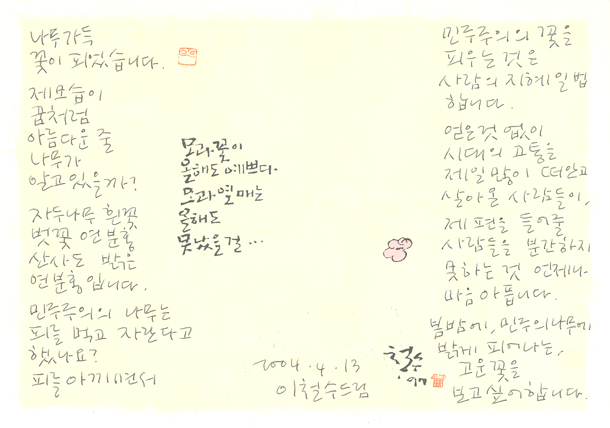 나무가득
꽃이 피었습니다.
제모습이
꿈처럼
아름다운 줄
나무가
알고있을까?
자두나무 흰꽃
벚꽃 연분홍
산사도 밝은
연분홍입니다.
민주주의의 나무는
피를 먹고 자란다고
했나요?
피를 아끼면서
모과꽃이
올해도 예쁘다.
모과열매는
올해도
못났을걸...
2004.4.13
이철수드림
철수
민주주의의 꽃을
피우는것은
사람의 지혜일법
합니다.
얻은것 없이
시대의 고통을
제일많이 떠안고
살아온 사람들이,
제 편을 들어줄
사람들을 분간하지
못하는 것 언제나
마음아픕니다.
봄밤에, 민주의나무에
밝게 피어나는,
고운꽃을
보고싶어합니다.